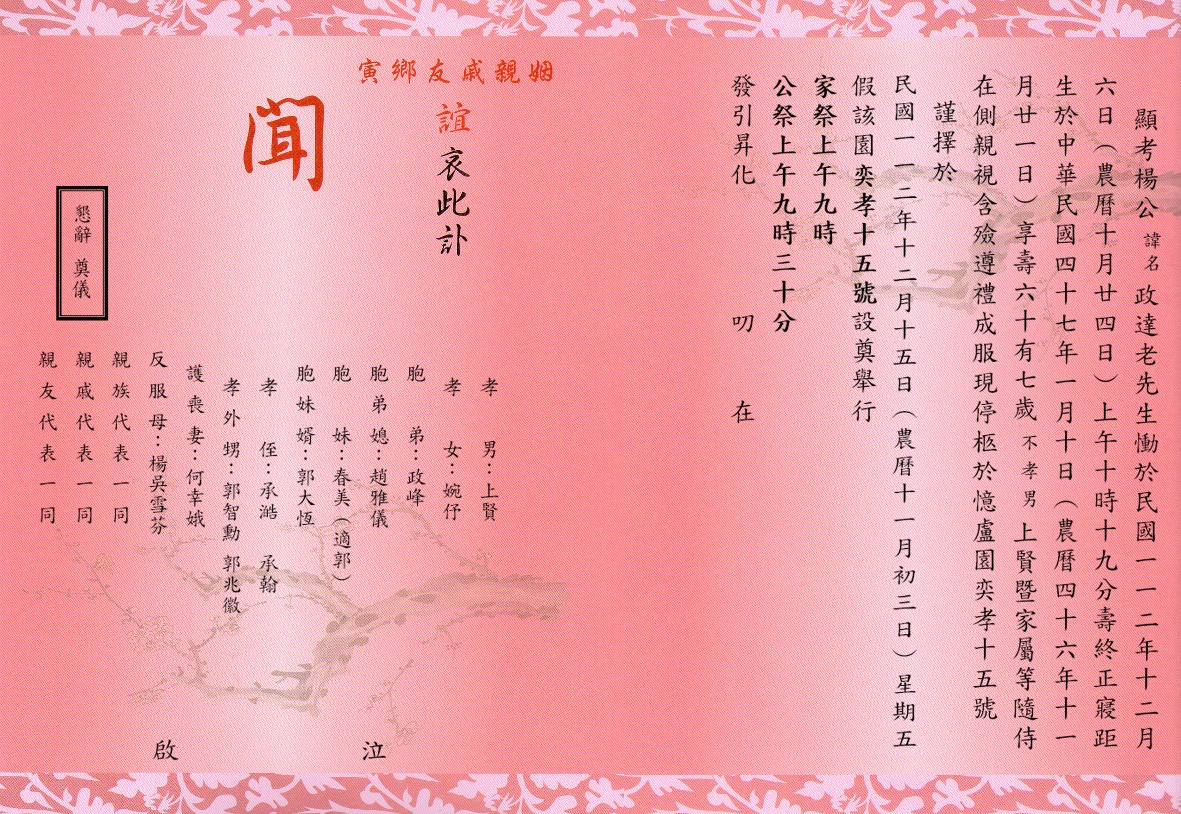 顯考楊公諱名政達老先生慟於民國一一二年十二月
六日（農曆十月廿四日）上午十時十九分壽終正寢距
生於中華民國四十七年一月十日（農曆四十六年十一
月廿一日）享壽六十有七歲不孝男上賢暨家屬等隨侍
在側親視含殮遵禮成服現停柩於憶盧園奕孝十五號
謹擇於
民國一一二年十二月十五日（農曆十一月初三日）星期五
假該園奕孝十五號設奠舉行
家祭上午九時
公祭上午九時三十分
發引昇化 叨 在
姻親戚友鄉寅
誼哀此訃
聞
孝男：上賢
孝女：婉伃
胞弟：政峰
胞弟媳：趙雅儀
胞妹：春美（適郭）
胞妹婿：郭大恆
孝侄：承澔 承翰
孝外甥：郭智勳 郭兆徽
護喪妻：何幸娥
反服母：楊吳雪芬
親族代表一同
親戚代表一同
親友代表一同
泣 啟
懇辭 奠儀